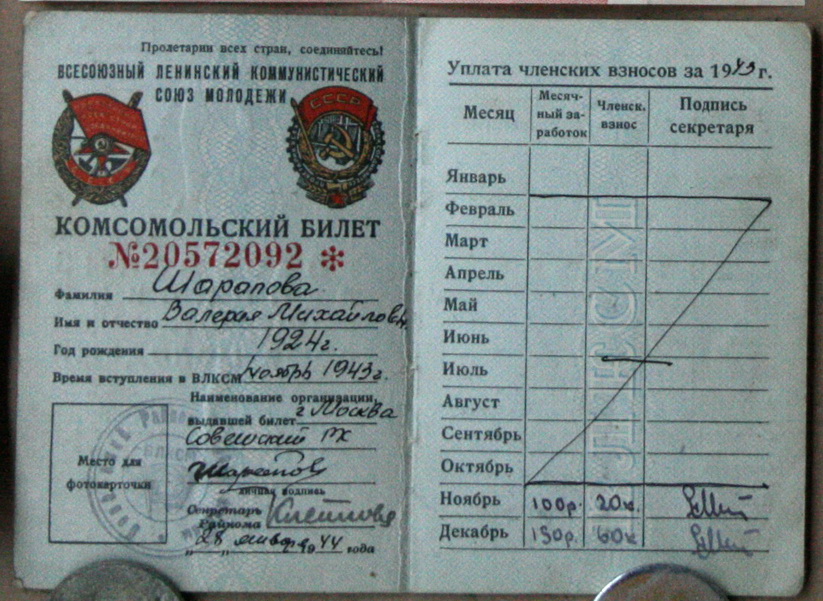 Пролетарии всех стран, соединяйтесь!
ВСЕСОЮЗНЫЙ ЛЕНИНСКИЙ КОММУНИСТИЧЕСКИЙ
СОЮЗ МОЛОДЕЖИ
СССР
КОМСОМОЛЬСКИЙ БИЛЕТ
№20572092 *
Фамилия Шарапова
Имя и отчество Валерия Михайловн.
Год рождения 1924г.
Время вступления в ВЛКСМ ноябрь 1943г.
Наименование организации,
выдавшей билет г Москва
Советский РК
Место для
фотокарточки
личная подпись
Секретарь
Райкома
"28" января 1944 года
Уплата членских взносов за 1943 г.
Месяц Месяч-ный за-работок Членск. взнос Подпись секретаря
Январь
Февраль
Март
Апрель
Май
Июнь
Июль
Август
Сентябрь
Октябрь
Ноябрь 100р. 20к.
Декабрь 150р. 60к.